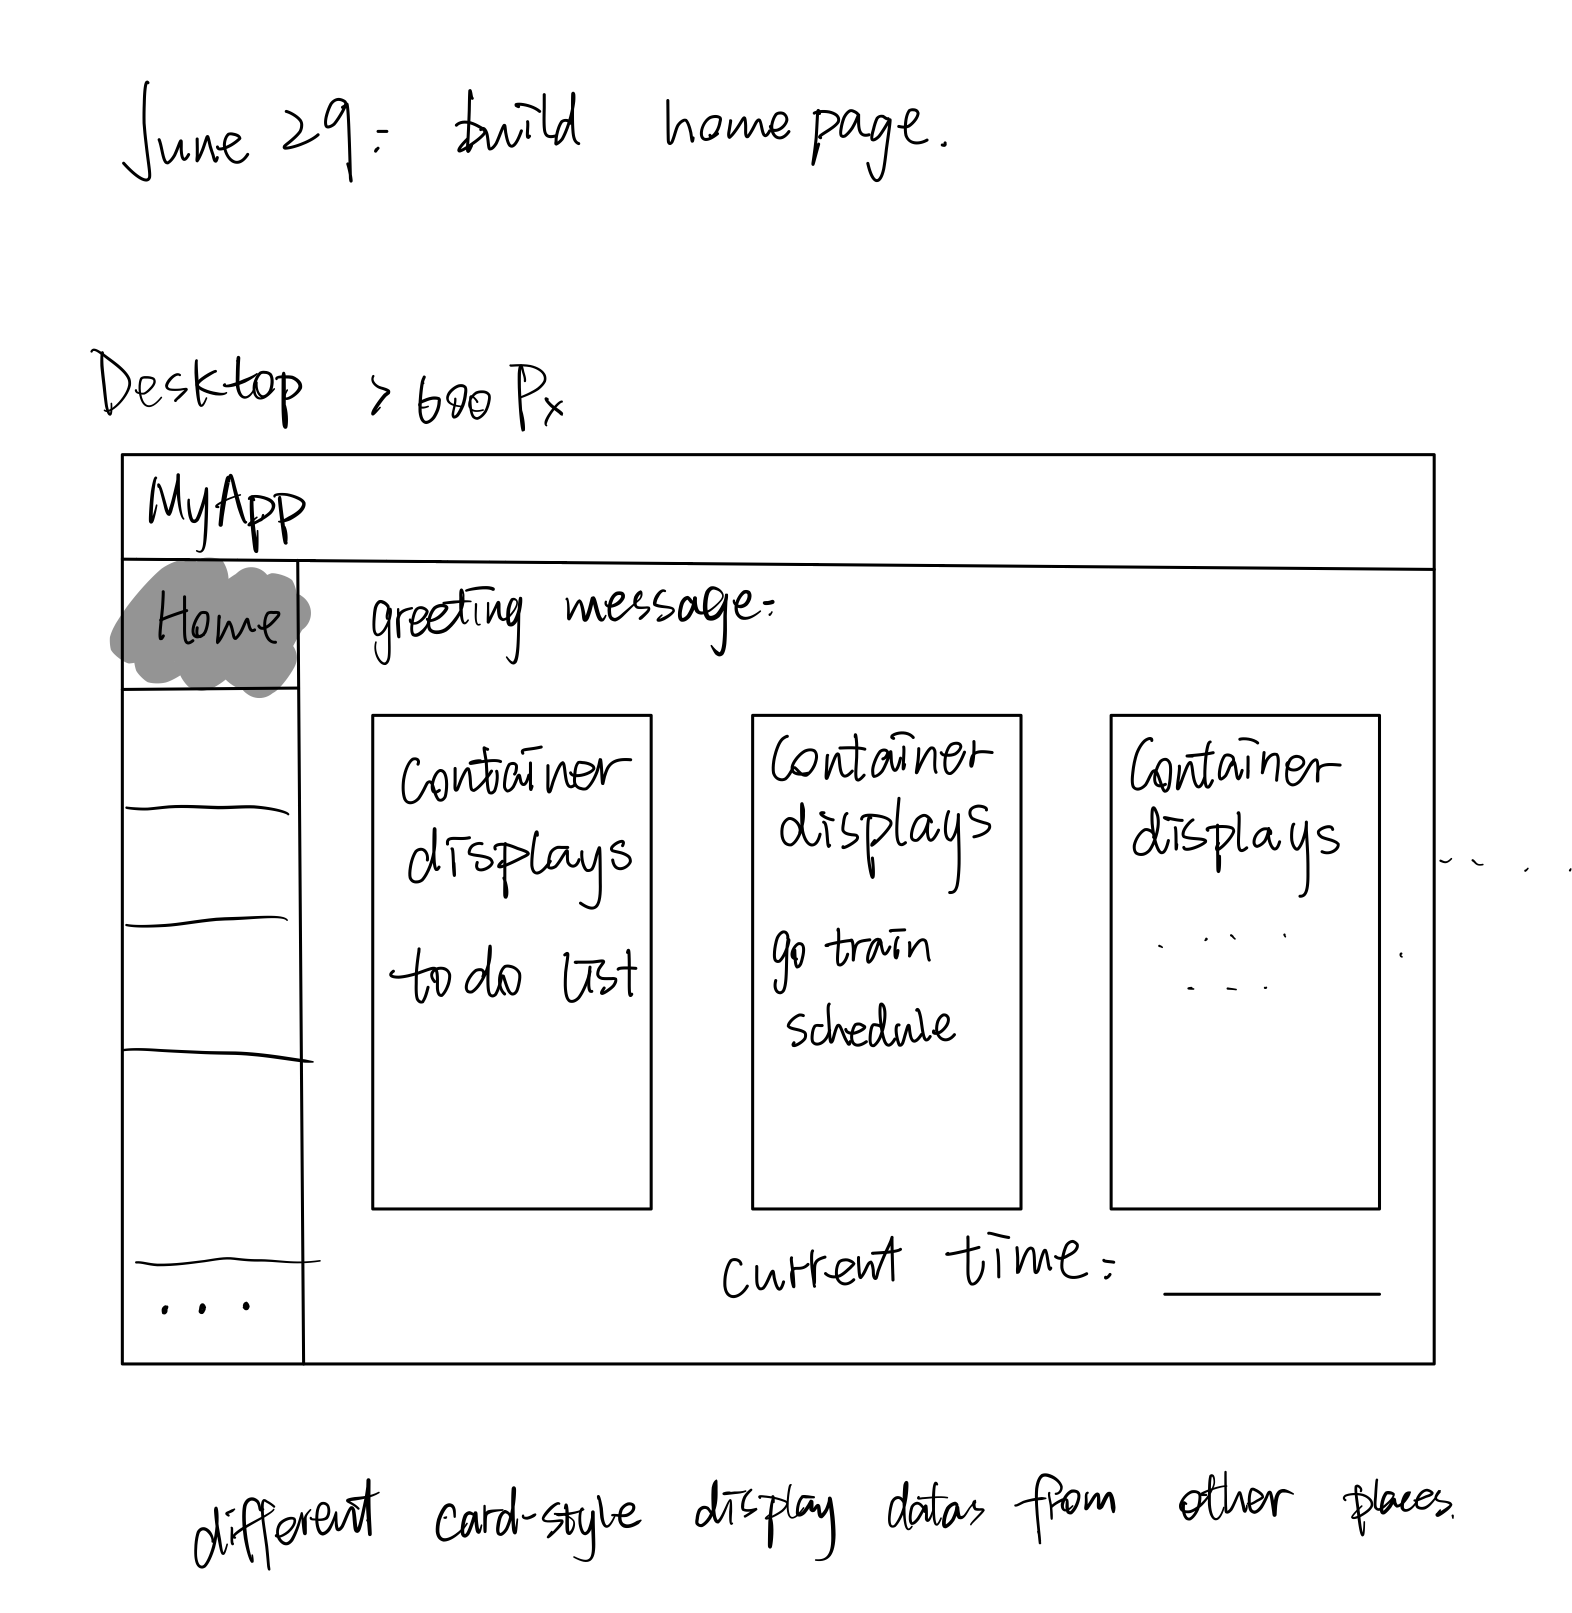 June 29: build homepage.
Desktop > 600 Px
MyApp
Home
greeting message:
Container
displays
to do list
Container
displays
go train
schedule
Container
displays
. . . .
. . .
. . . .
. . .
current time: ______
different card-style display datas from other places.